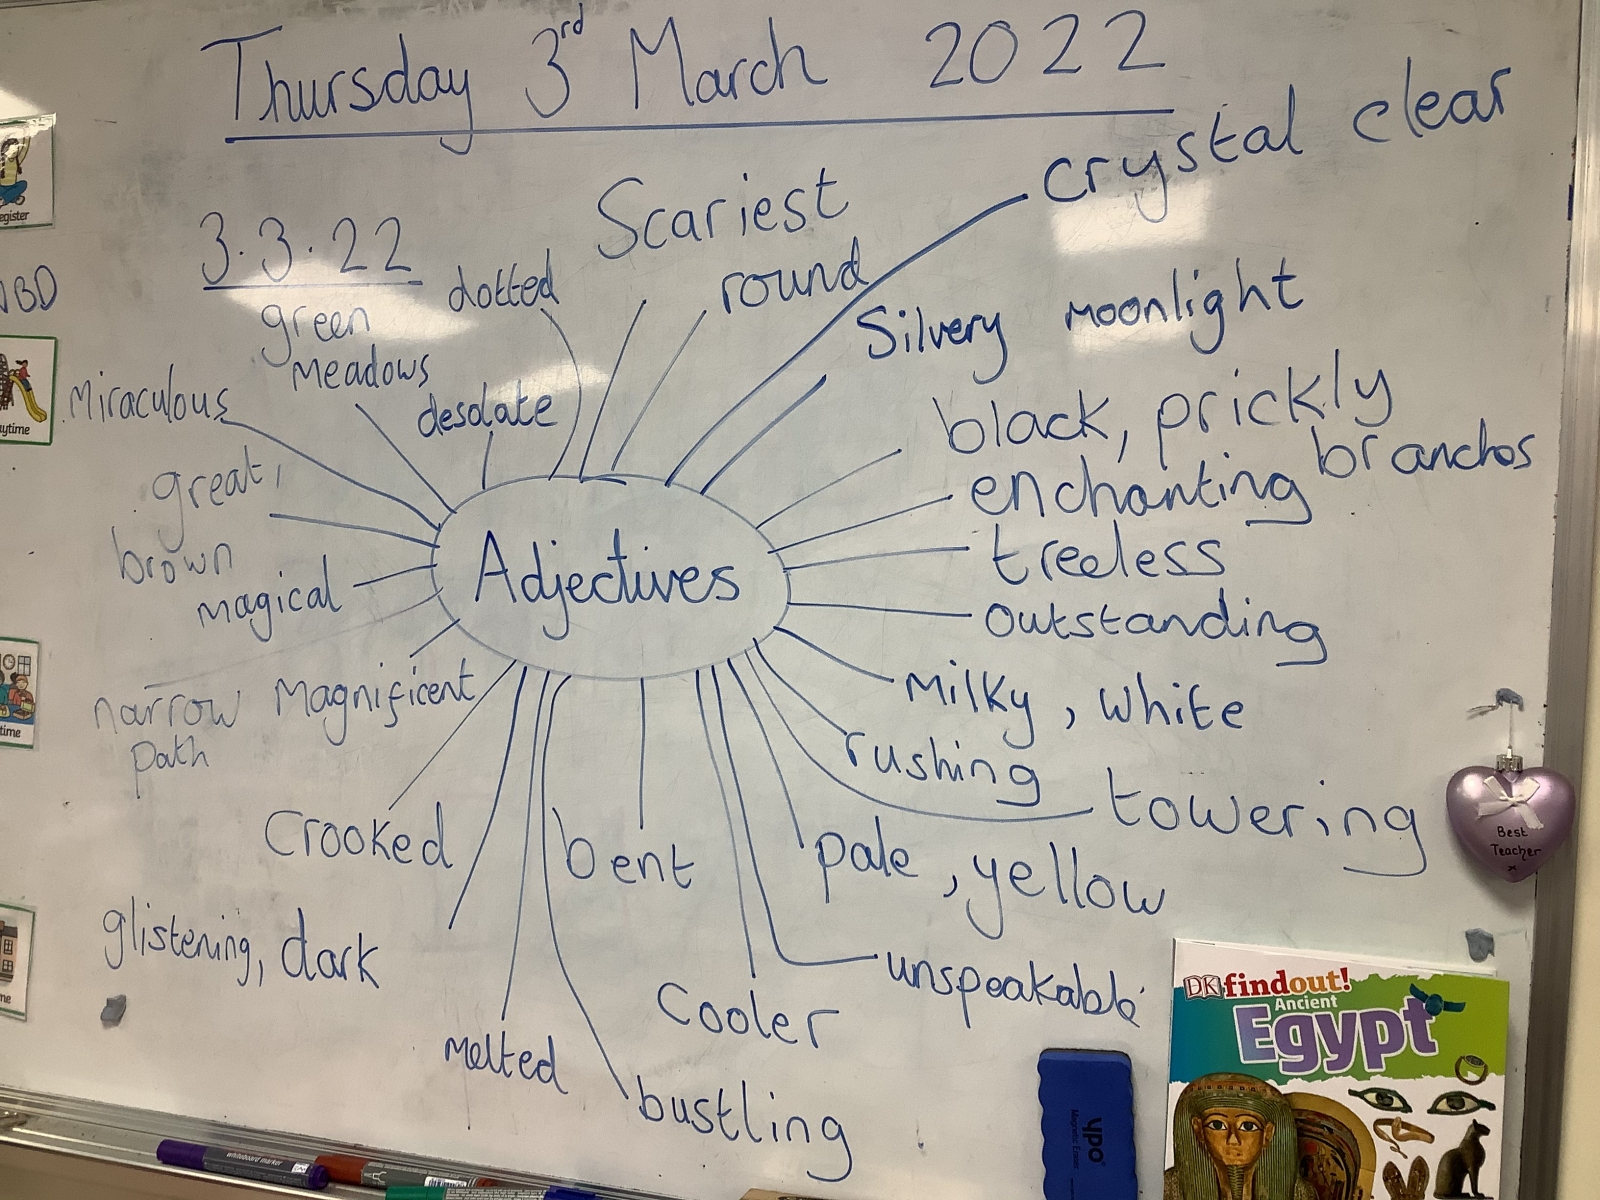 Thursday 3rd March 2022
3.3.22
Scariest
crystal clear
dotted
round
green
meadows
Silvery moonlight
Miraculous
desolate
black, prickly
branches
great,
brown
enchanting
treeless
magical
Adjectives
outstanding
narrow
path
Magnificent
Milky, white
rushing
towering
Crooked
bent
pale, yellow
glistening, dark
unspeakable
Cooler
Melted
bustling
egister
ytime
time
me
Best
Teacher
x
DK findout!
Ancient
Egypt
ypo
Magnetic Eraser
whiteboard marker